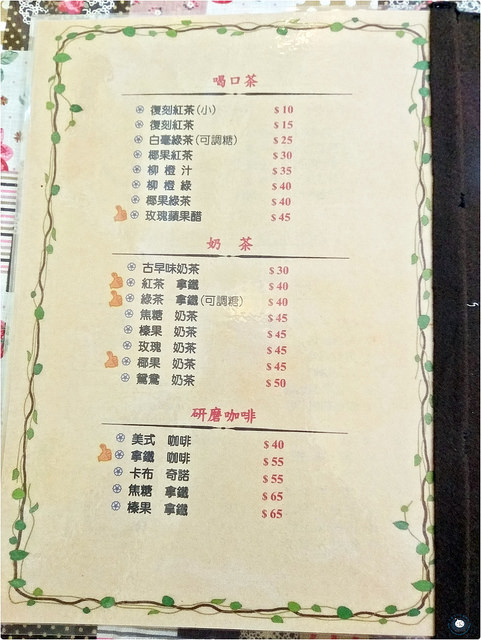 喝口茶
復刻紅茶(小) $10
復刻紅茶 $15
白毫綠茶(可調糖) $25
椰果紅茶 $30
柳 橙 汁 $35
柳 橙 綠 $40
椰果綠茶 $40
玫瑰蘋果醋 $45
奶 茶
古早味奶茶 $30
紅茶 拿鐵 $40
綠茶 拿鐵(可調糖) $40
焦糖 奶茶 $45
榛果 奶茶 $45
玫瑰 奶茶 $45
椰果 奶茶 $45
鴛鴦 奶茶 $50
研磨咖啡
美式 咖啡 $40
拿鐵 咖啡 $55
卡布 奇諾 $55
焦糖 拿鐵 $65
榛果 拿鐵 $65